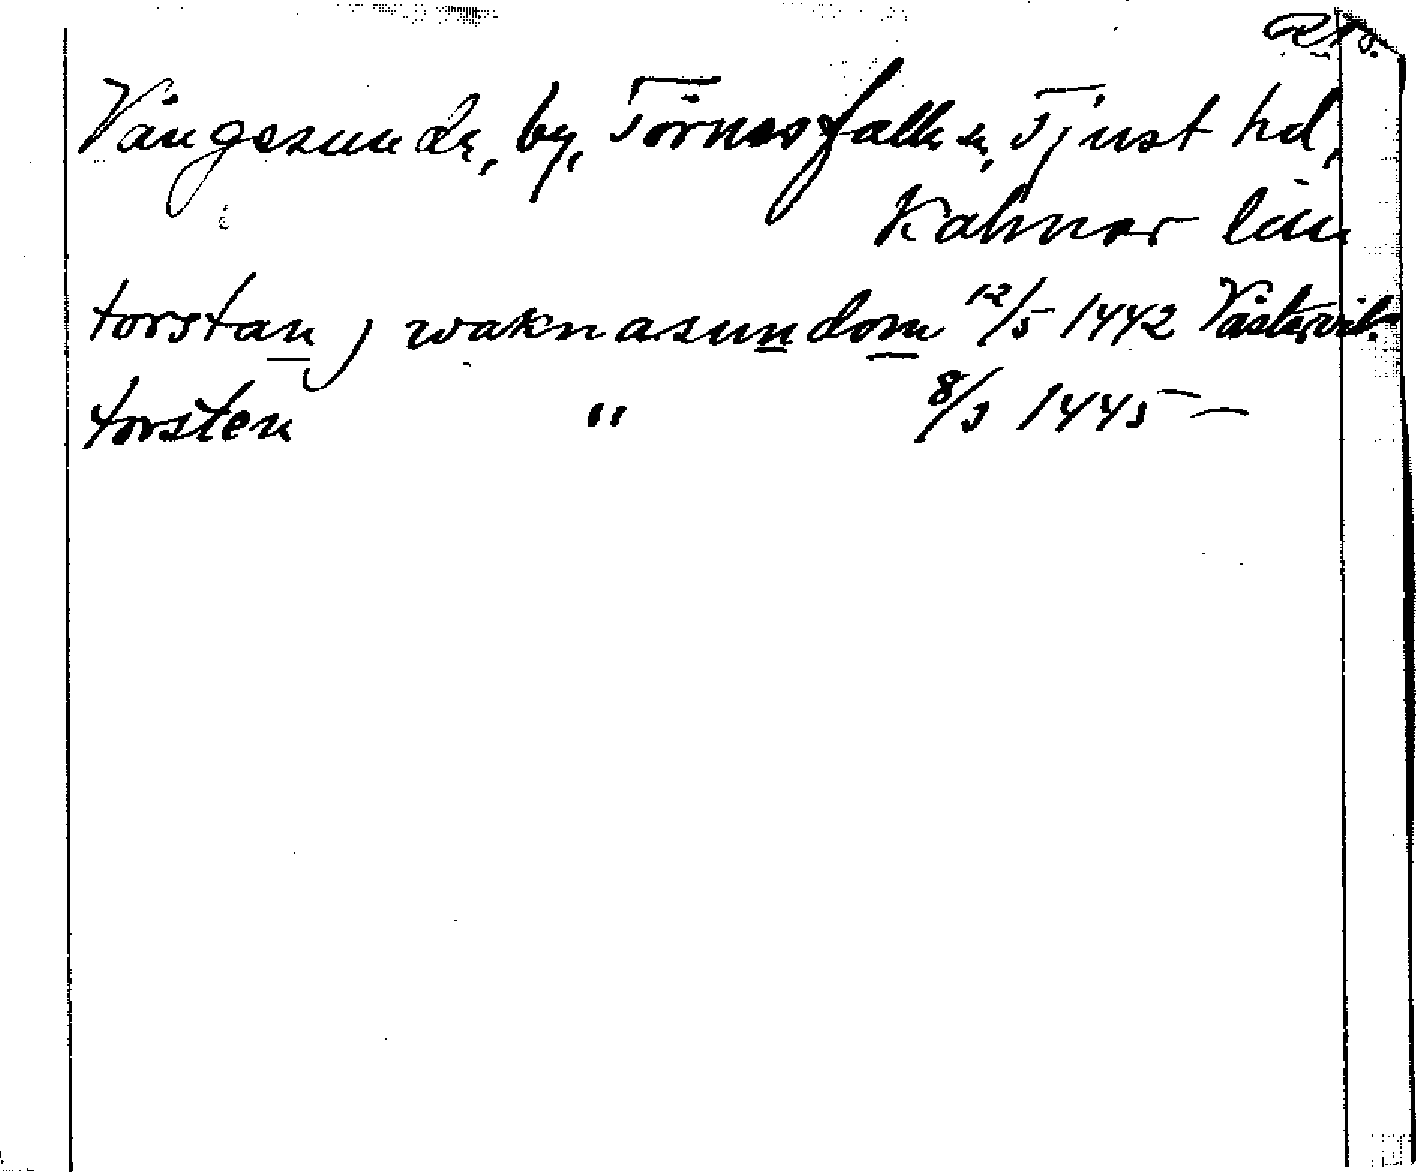 Vångesunda, by, Törnesfalla sn, Tjust hd,
Kalmar län
torstan j waknasundom 12/5 1442 Västervik.
torsten " 8/3 1445 —